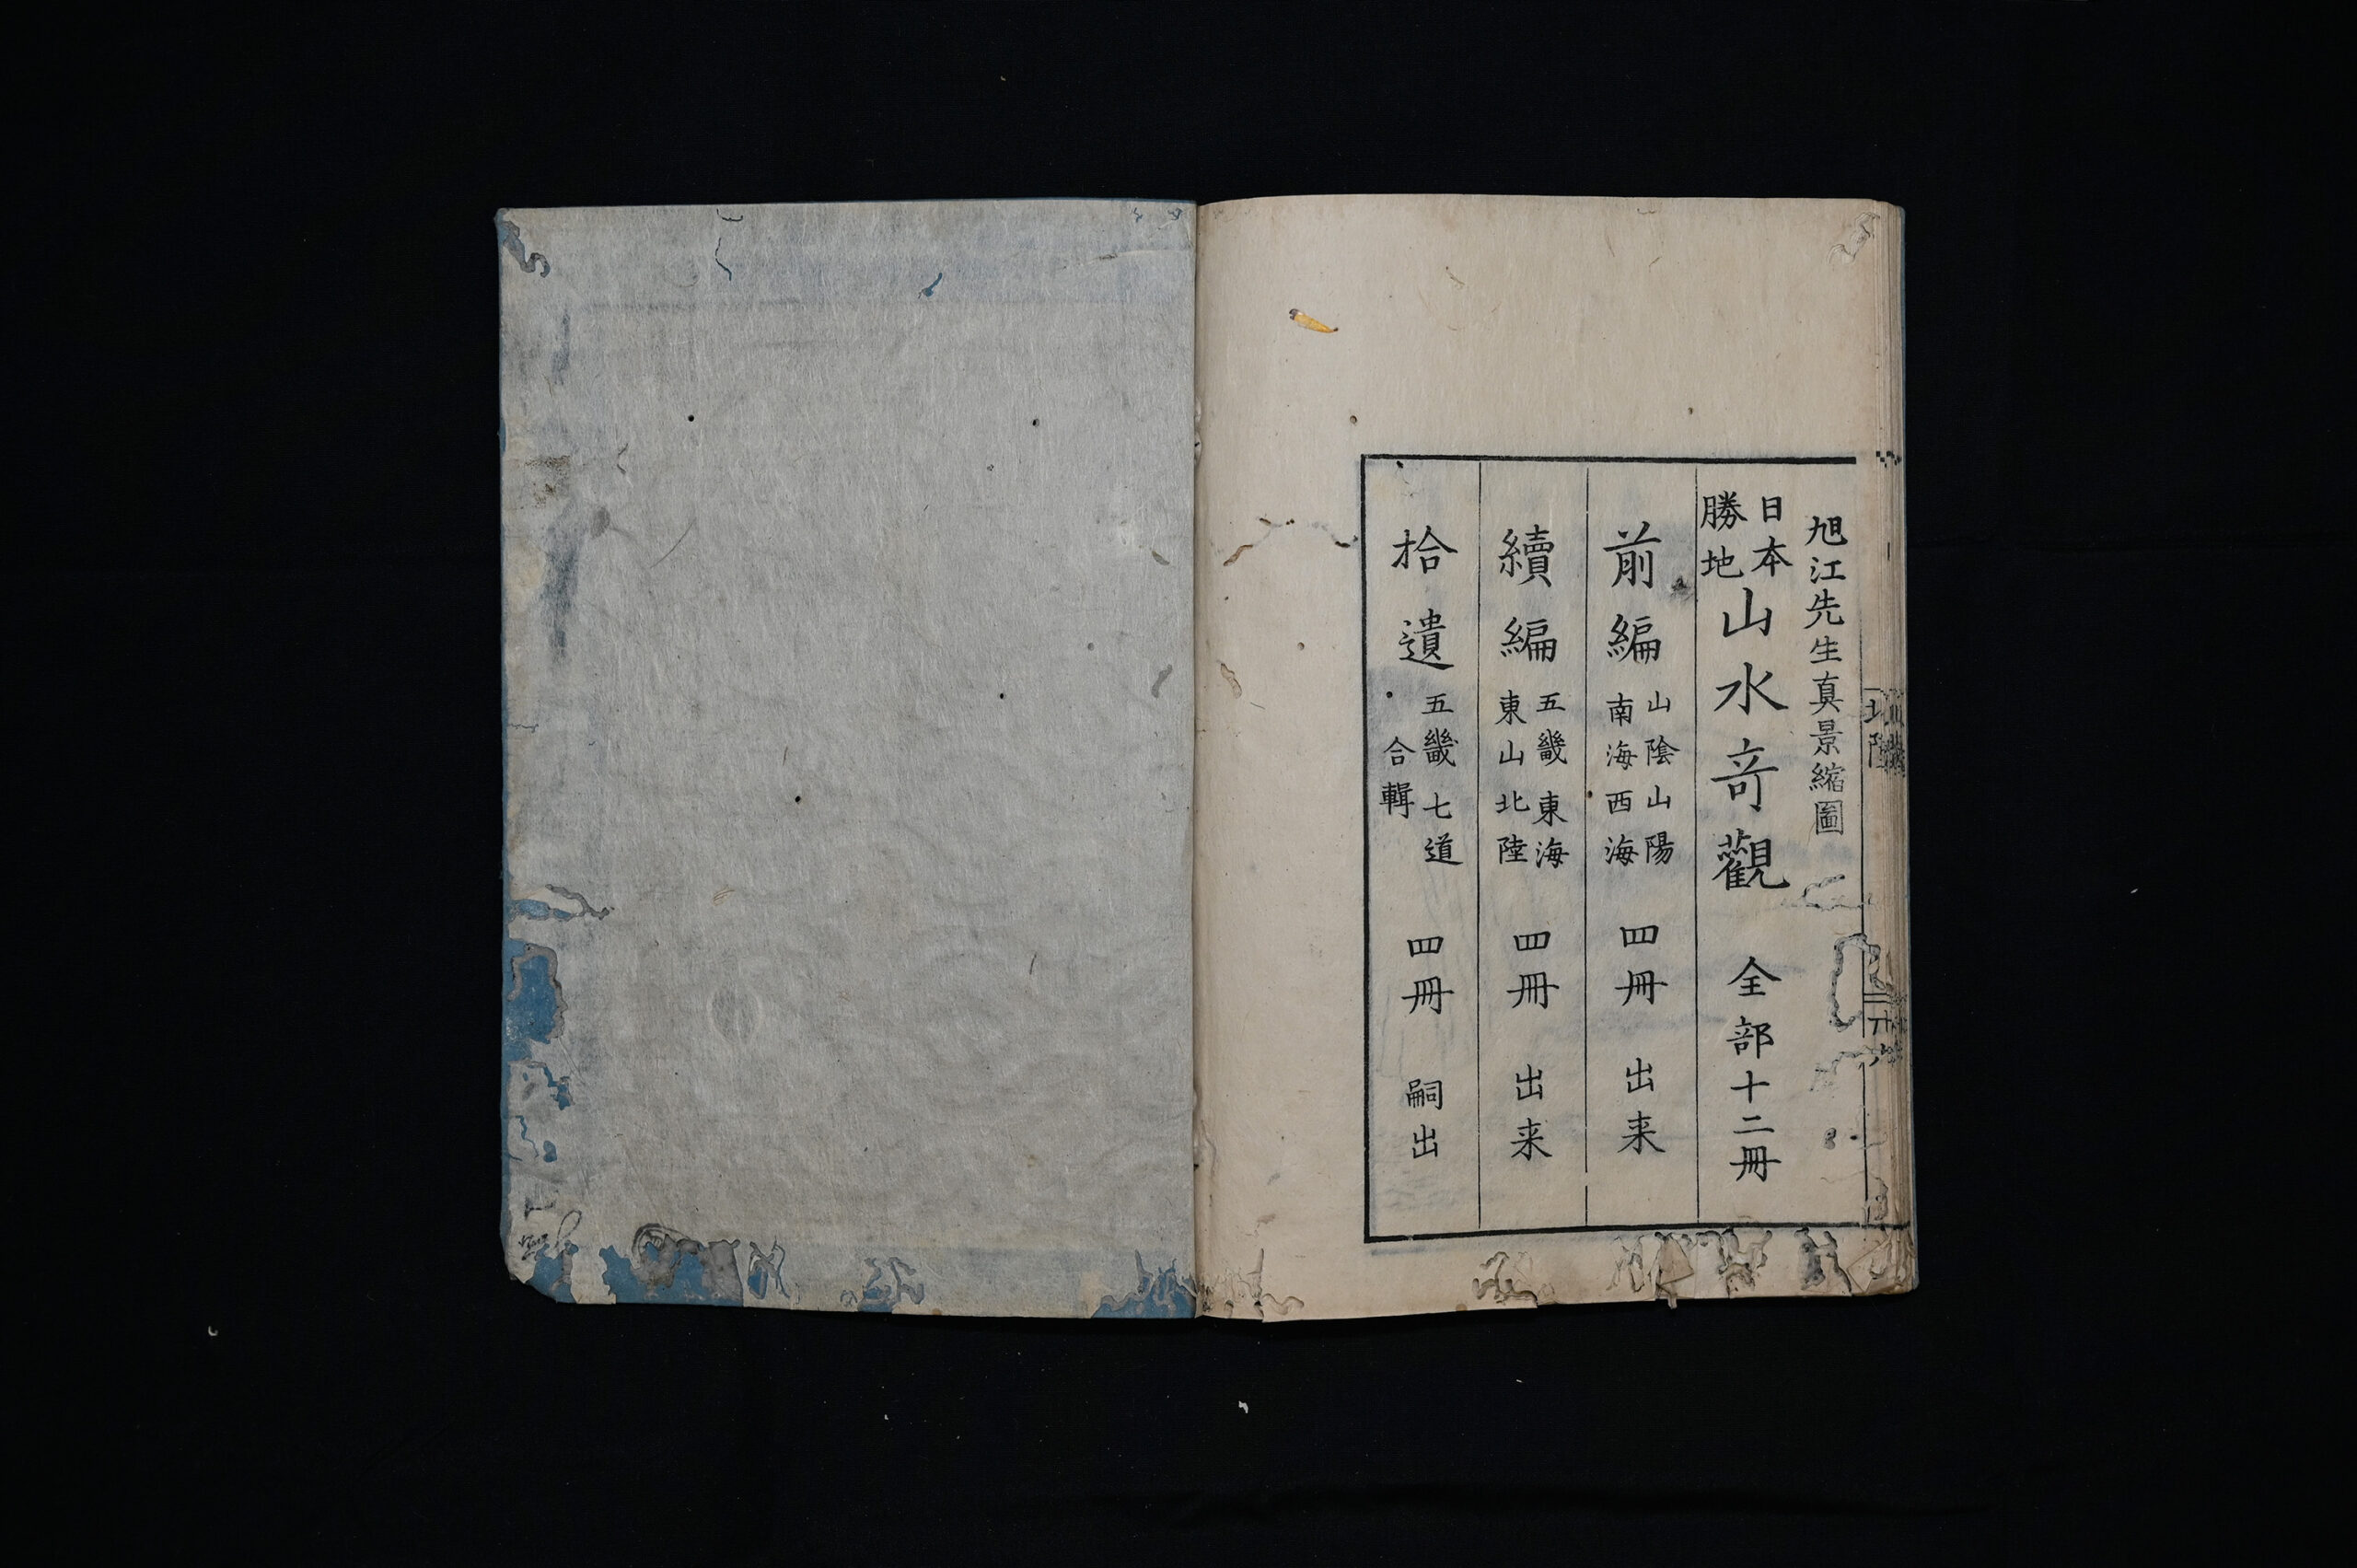 旭江先生真景縮圖
日本
勝地
山水竒觀 全部十二冊
前編
山陰山陽
南海西海
四冊 出来
續編
五畿東海
東山北陸
四冊 出来
拾遺
五畿七道
合輯
四冊 嗣出